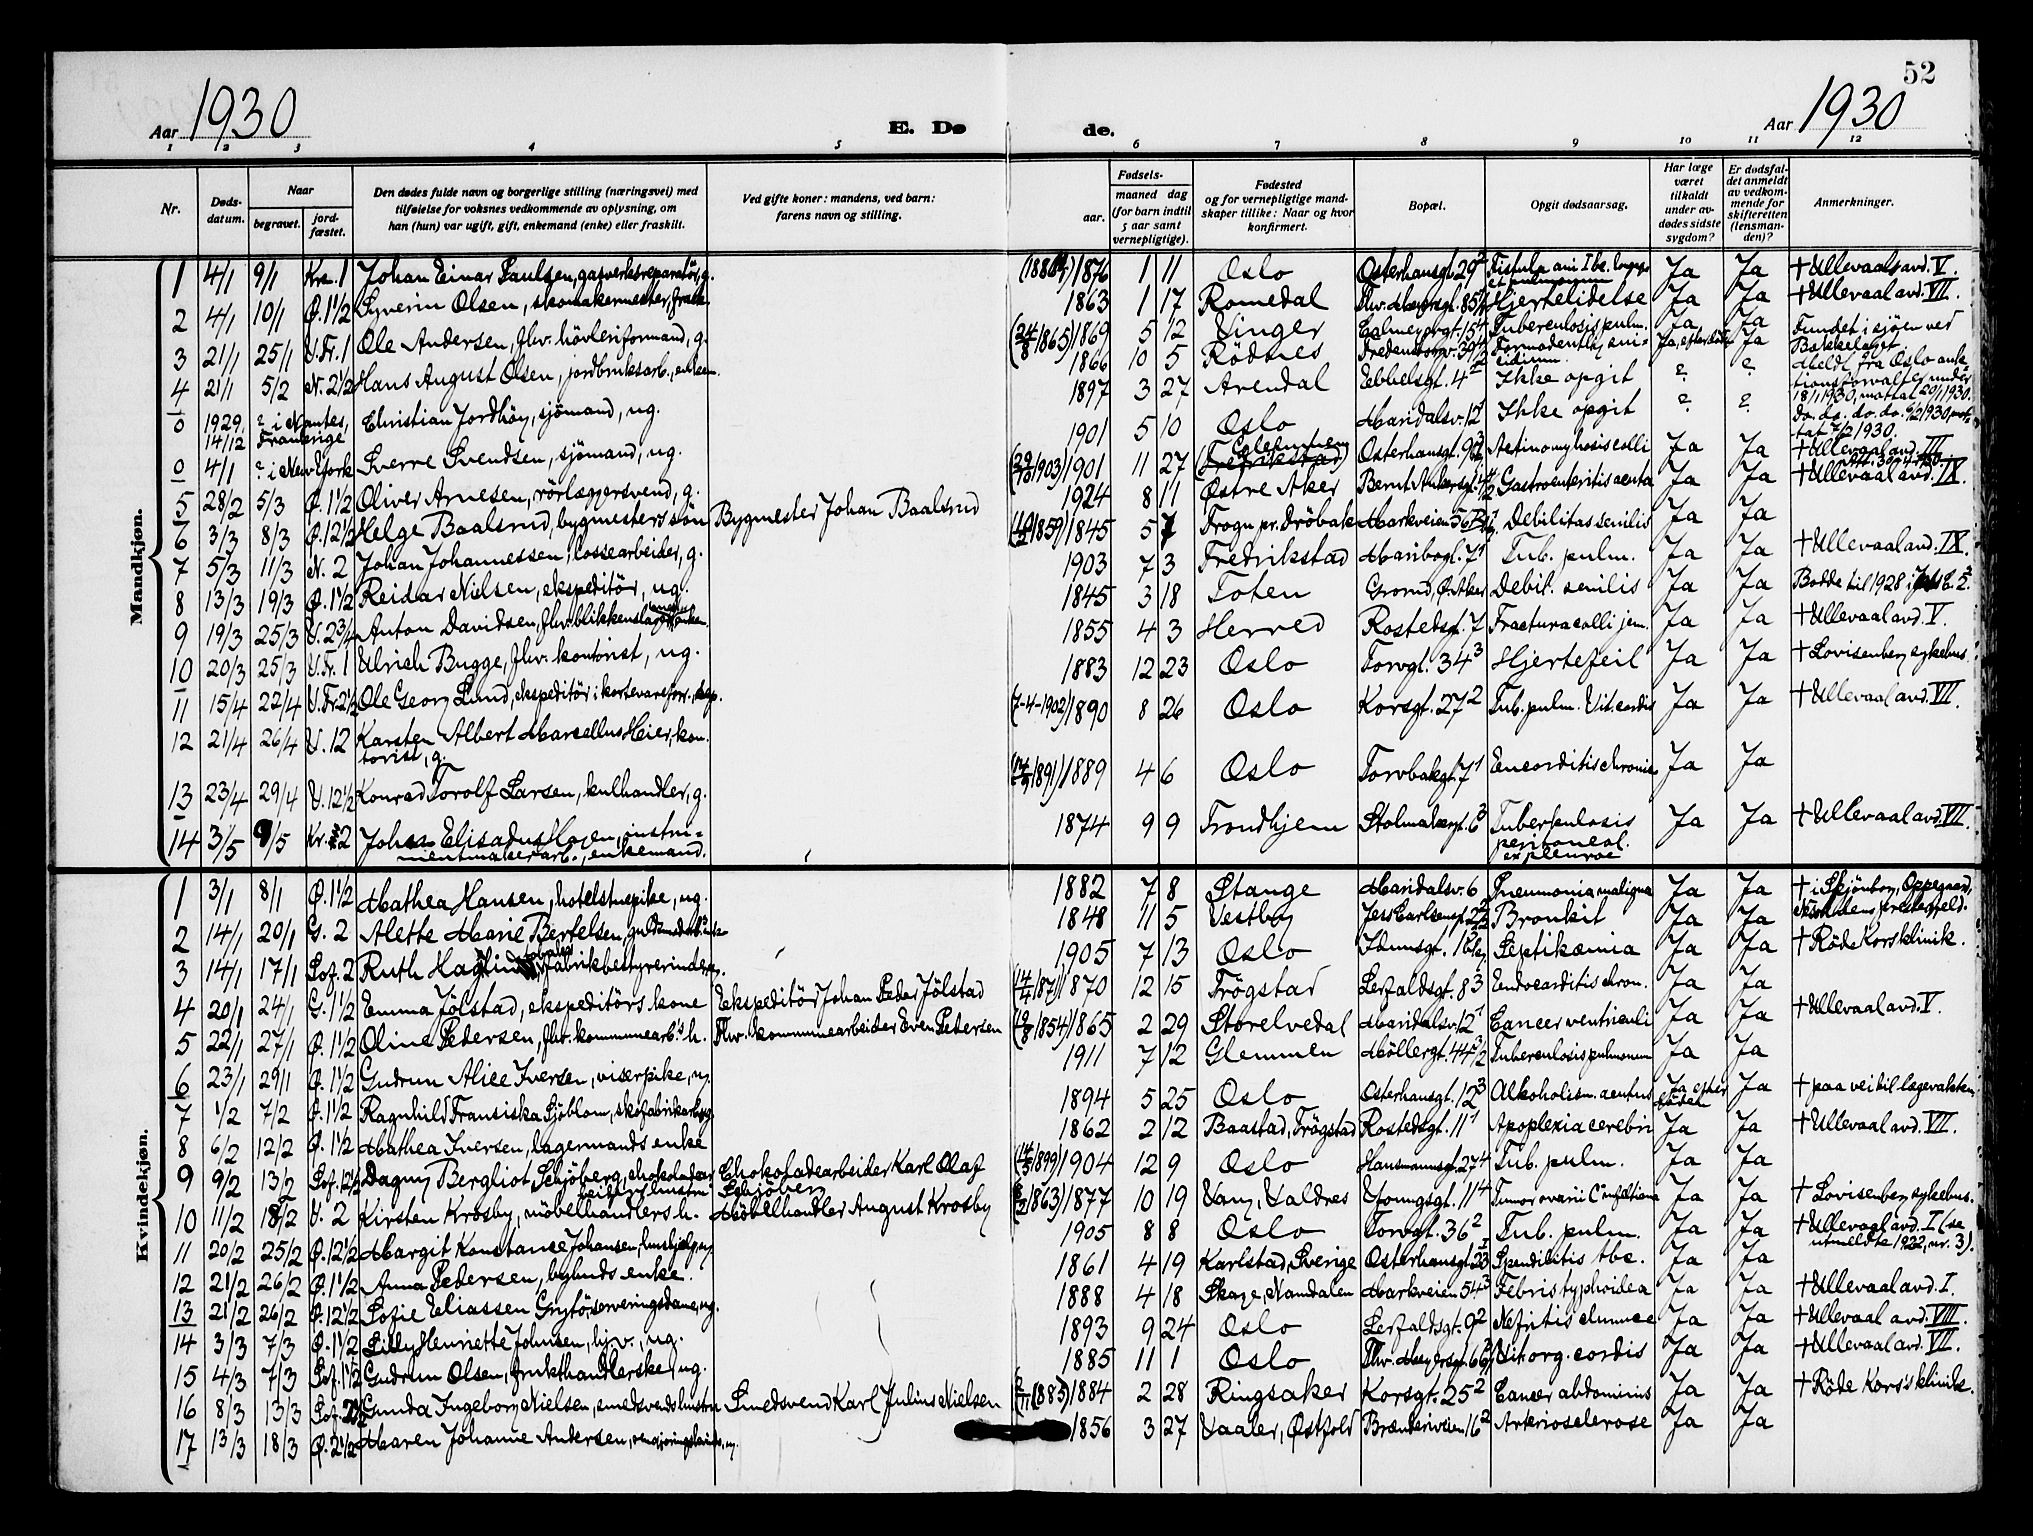 52
Aar 1930
E. Dø de.
Aar 1930
1 2 3 4 5 6 7 8 9 10 11 12
Nr.
Døds-
datum.
Naar
begravet.
jord-
fæstet.
Den dødes fulde navn og borgerlige stilling (næringsvei) med
tilføielse for voksnes vedkommende av oplysning, om
han (hun) var ugift, gift, enkemand (enke) eller fraskilt.
Ved gifte koner: mandens, ved barn:
farens navn og stilling.
Fødsels-
aar.
maaned dag
(for barn indtil
5 aar samt
vernepligtige).
Fødested
og for vernepligtige mand-
skaper tillike: Naar og hvor
konfirmert.
Bopæl.
Opgit dødsaarsag.
Har læge
været
tilkaldt
under av-
dødes sidste
sygdom?
Er dødsfal-
det anmeldt
av vedkom-
mende for
skifteretten
(lensman-
den)?
Anmerkninger.
Mandkjøn.
1 4/1 9/1 Kr. 1 Johan Einar Paulsen, gasverksreparatör, g. 1876 1 11 Oslo Osterhausgt. 29² Fistula ani Ja Ja † Ullevaals avd. V.
2 4/1 10/1 Ø. 1 1/2 Syverin Olsen, skomakermester, frask. 1863 1 17 Romedal Thv. Meyersgt. 85 Hjertelidelse Ja Ja † Ullevaal avd. VII.
3 21/1 25/1 V.Fr. 1 Ole Andersen, fhv. hövleriformand, g. 1869 5 12 Vinger Calmeyergt. 15⁴ Tuberculosis pulm. Ja Ja
4 21/1 5/2 N. 2 1/2 Hans August Olsen, jordbruksarb., enkem. 1866 10 5 Rödnes Ja, efter döden Ja Fundet i sjøen ved
Bækkelaget.
0 1929 14/12 ? i Nantes, Frankrige Christian Jordhöy, sjömand, ug. 1897 3 27 Arendal Ebbelsgt. 4 Ikke opgit ? ? Meldt fra Oslo auk-
tionsforvalter under
18/1 1930, mottat 20/1 1930.
0 4/1 ? i New York Sverre Svendsen, sjömand, ug. 1901 5 10 Oslo Maridalsv. 12 Ikke opgit ? ? Do. do. do. do. 6/2 1930, mot-
tat 7/2 1930.
5 28/2 5/3 Ø. 1 1/2 Oliver Arnesen, rörlæggersvend, g. 1901 11 27 Glemmen (Fredrikstad) Osterhausgt. 9 Actinomykosis colli Ja Ja † Ullevaal avd. III
6 3/3 8/3 Ø. 12 1/2 Helge Baalsrud, bygmesters sön Bygmester Johan Baalsrud 1924 8 11 Østre Aker Bernt Ankersgt. Gastroenteritis acuta Ja Ja † Ullevaal avd. IX.
7 5/3 11/3 N. 2 Johan Johannessen, lossearbeider, g. 1845 5 7 Frogn pr. Dröbak Markveien 56 Debilitas senilis Ja Ja
8 13/3 19/3 Ø. 1 1/2 Reidar Nielsen, ekspeditör, ug. 1903 7 3 Fredrikstad Maribogt. 7 Tub. pulm. Ja Ja † Ullevaal avd. IX.
9 19/3 25/3 V. 2 3/4 Anton Davidsen, fhv. blikkenslager 1845 3 18 Toten Grorud, Ø. Aker Debit. senilis Ja Ja Bodde til 1928 i
10 20/3 25/3 V.Fr. 1 Ulrich Bugge, fhv. kontorist, ug. 1855 4 3 Herred Rostedsgt. 7 Fractura colli fem. Ja Ja † Ullevaal avd. V.
11 15/4 22/4 V.Fr. 2 1/2 Ole Georg Lund, ekspeditör i kortevareforr. 1883 12 23 Oslo Torvgt. 34³ Hjertefeil Ja Ja † Lovisenberg sykehus.
12 21/4 26/4 V. 12 Karsten Albert Marsellus Heier, kon-
torist, g. (7-4-1902) 1890 8 26 Oslo Korsgt. 27² Tub. pulm. Vit. cordis Ja Ja † Ullevaal avd. VII.
13 23/4 29/4 V. 12 1/2 Konrad Torolf Larsen, kulhandler, g. 1889 4 6 Oslo Torvbakgt. 7¹ Encorditis chronic Ja Ja
14 3/5 9/5 Kr. 2 Johan Elisæus Hagen, instru-
mentmakerarb., enkemand. 1874 9 9 Trondhjem Stolmakergt. 6³ Tuberkulosis
peritoneal.
et pleurae Ja Ja † Ullevaal avd. VII.
Kvindekjøn.
1 3/1 8/1 Ø. 1 1/2 Mathea Hansen, hotelstuepike, ug. 1882 7 8 Stange Maridalsv. 6 Pneumonia maligna Ja Ja † i Skjönborg, Oppegaard,
prestegjeld.
2 14/1 20/1 G. 2 Alette Marie Bertelsen, 1848 11 5 Vestby Jess Carlsensgt. Bronkit Ja Ja
3 14/1 17/1 Sof. 2 Ruth Haglind, fabrikbestyrerinde, 1905 7 13 Oslo Idunsgt. Septikæmia Ja Ja † Röde Kors klinik.
4 20/1 24/1 G. 1 1/2 Emma Jölstad, ekspeditörs kone Ekspeditör Johan Peder Jölstad 1870 12 15 Trögstad Herfaldsgt. 8³ Endocarditis chron. Ja Ja
5 22/1 27/1 Ø. 1 1/2 Oline Pedersen, fhv. kommunearb.'s h. Fhv. kommunearbeider Even Petersen 1865 2 29 Storelvedal Maridalsv. 12 Cancer ventriculi Ja Ja † Ullevaal avd. V.
6 23/1 29/1 Ø. 1 1/2 Gudrun Alice Iversen, viserpike, ug. 1911 7 12 Glemmen Möllergt. 44 Tuberculosis pulmonum Ja Ja
7 1/2 7/2 Ø. 1 1/2 Ragnhild Fransiska Sjöblom, skofabrikarb. ug. 1894 5 25 Oslo Osterhausgt. 12³ Alkoholism. acutus Ja efter
döden Ja † paa vei til lægevakten
8 6/2 12/2 Ø. 1 1/2 Mathea Iversen, lagermands enke 1862 2 12 Baastad, Trögstad Rostedsgt. 11¹ Apoplexia cerebri Ja Ja † Ullevaal avd. VII.
9 9/2 13/2 Sof. 12 1/2 Dagny Bergliot Schjöberg, chokolade-
arbeiders hustru Chokoladearbeider Karl Olaf
Schjöberg 1904 12 9 Oslo Hausmannsgt. 27⁴ Tub. pulm. Ja Ja
10 11/2 18/2 V. 2 Kirsten Krosby, möbelhandlers h. Möbelhandler August Krosby 1877 10 19 Vang, Valdres Youngsgt. 11⁴ Tumor ovarii Ja Ja † Lovisenberg sykehus.
11 20/2 25/2 Ø. 12 1/2 Margit Konstanse Johansen, hushjelp, ug 1905 8 8 Oslo Torvgt. 36² Tub. pulm. Ja Ja † Ullevaal avd. I (se
utmeldte 1922, nr. 3).
12 21/2 26/2 Ø. 1 1/2 Anna Pedersen, bybuds enke. 1861 4 19 Karlstad, Sverige Osterhausgt. Spondilitis tbc. Ja Ja
13 21/2 26/2 Ø. 12 1/2 Sofie Eliassen Grytö, serveringsdame, ug. 1888 4 18 Skage, Namdalen Markveien 54³ Febris typhoidea Ja Ja † Ullevaal avd. I.
14 3/3 7/3 Ø. 1 1/2 Lilly Henriette Johnsen, hj.v., ug. 1893 9 24 Oslo Herfaldsgt. 9² Nefritis Ja Ja † Ullevaal avd. VIII.
15 4/3 7/3 Sof. 1 1/2 Gudrun Olsen, frukthandlerske, ug. 1885 11 1 Oslo Thv. Meyersgt. 66 Vit. org. cordis Ja Ja † Ullevaal avd. VII.
16 8/3 13/3 Sof. Gunda Ingeborg Nielsen, smedsvends hustru Smedsvend Karl Julius Nielsen 1884 2 28 Ringsaker Korsgt. 25² Cancer abdominis Ja Ja † Röde Kors's klinik.
17 13/3 18/3 Ø. 2 1/2 Maren Johanne Andersen, 1856 3 27 Vaaler, Østfold Brænderiveien 16² Arteriosclerose Ja Ja